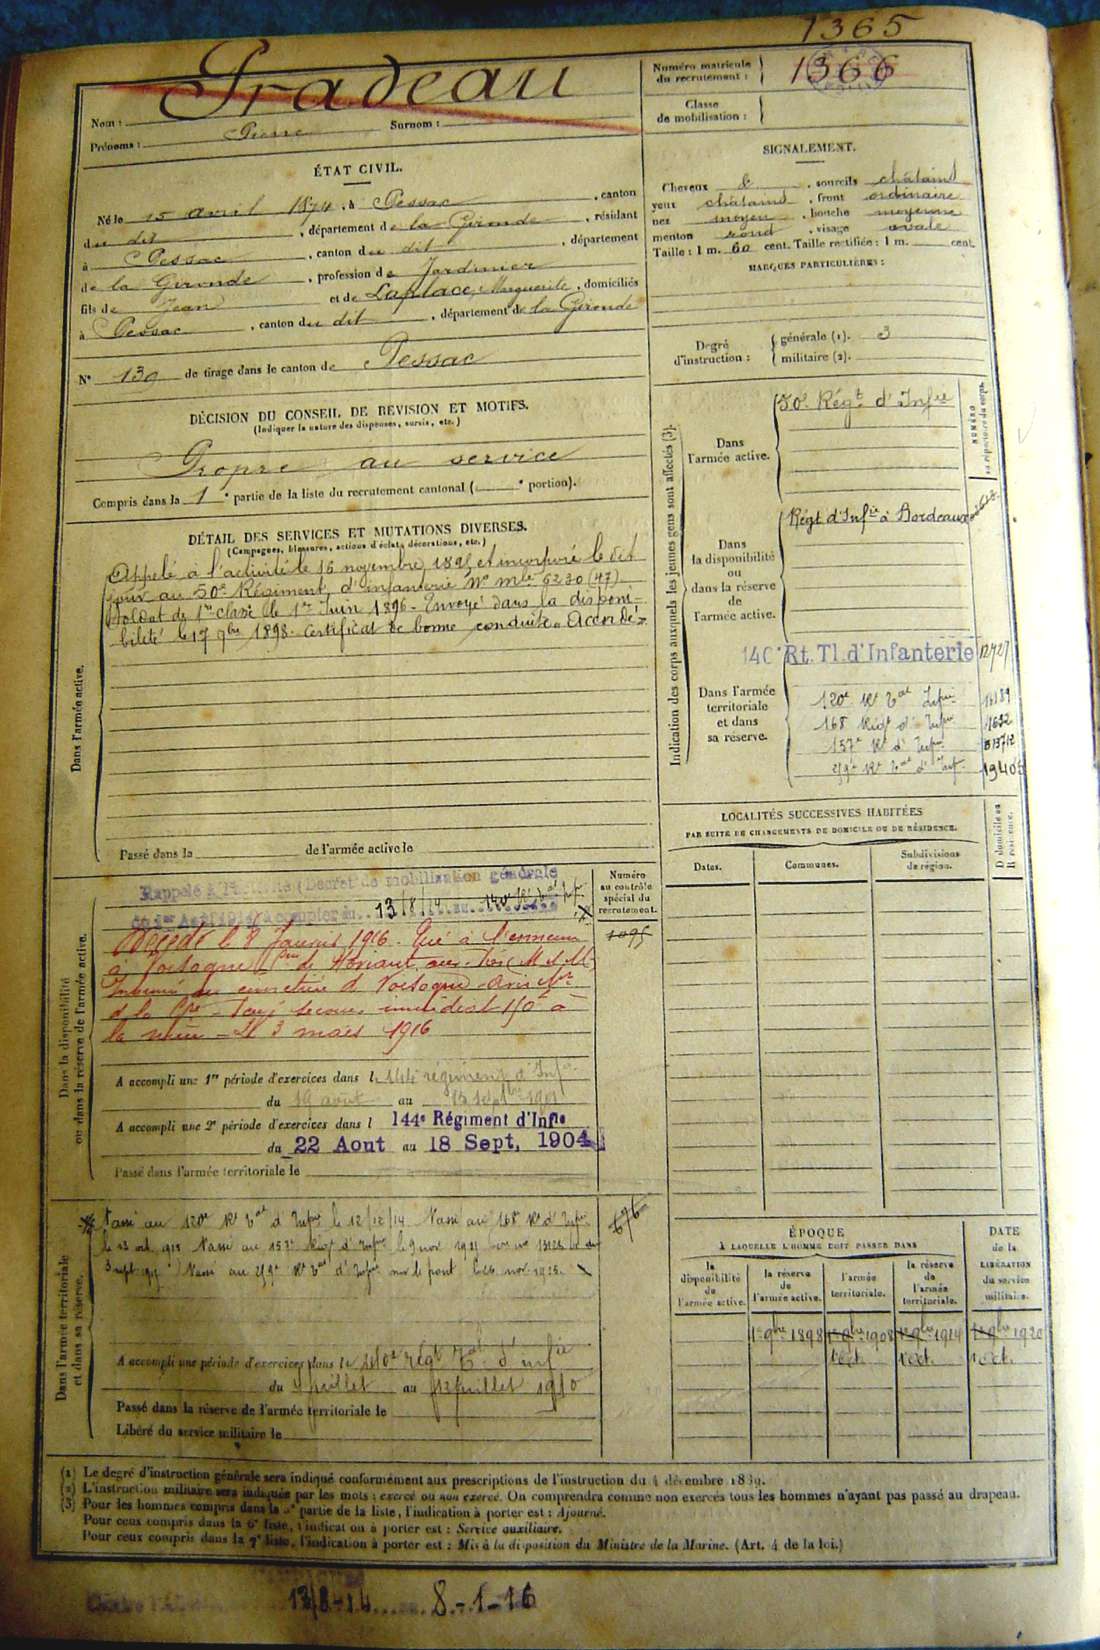 1365
Pradeau
Nom :
Prénoms : Pierre Surnom :
Numéro matricule du recrutement : 1366
Classe de mobilisation :
ÉTAT CIVIL.
Né le 15 avril 1874, à Pessac, canton
du dit, département de la Gironde, résidant
à Pessac, canton du dit, département
de la Gironde, profession de Jardinier
fils de Jean et de Laplace, Marguerite, domiciliés
à Pessac, canton du dit, département de la Gironde
N° 139 de tirage dans le canton de Pessac
SIGNALEMENT.
Cheveux &, sourcils châtains
yeux châtains, front ordinaire
nez moyen, bouche moyenne
menton rond, visage ovale
Taille : 1 m. 60 cent. Taille rectifiée : 1 m. cent.
MARQUES PARTICULIÈRES :
Degré d'instruction :
générale (1). 3
militaire (2).
DÉCISION DU CONSEIL DE RÉVISION ET MOTIFS.
(Indiquer la nature des dispenses, sursis, etc.)
Propre au service
Compris dans la 1e partie de la liste du recrutement cantonal ( e portion).
DÉTAIL DES SERVICES ET MUTATIONS DIVERSES.
(Campagnes, blessures, actions d'éclat, décorations, etc.)
Dans l'armée active.
Appelé à l'activité le 16 novembre 1895 et incorporé le dit
jour au 50e Régiment d'infanterie No mle 6230 (47)
soldat de 1re classe le 1er Juin 1896 - Envoyé dans la disponi=
bilité le 17 9bre 1898. Certificat de bonne conduite « Accordé »
Passé dans la de l'armée active le
Indication des corps auxquels les jeunes gens sont affectés (3).
NUMÉRO au répertoire du corps.
Dans l'armée active.
50e Régt d'Infie
Dans la disponibilité ou dans la réserve de l'armée active.
Régt d'Infie à Bordeaux
Dans l'armée territoriale et dans sa réserve.
140e Rt. Tl. d'Infanterie 12727
120e Rt tal Infie 14189
168 Régt d'Infie
157e Rt d'Infie
Rt tal d'Inf. 19405
LOCALITÉS SUCCESSIVES HABITÉES
PAR SUITE DE CHANGEMENTS DE DOMICILE OU DE RÉSIDENCE.
Dates.
Communes.
Subdivisions de région.
D domicile ou R résidence.
Dans la disponibilité ou dans la réserve de l'armée active.
Numéro au contrôle spécial du recrutement.
1095
Rappelé à l'activité (Décret de mobilisation générale
du 1er Août 1914) à compter du 13/8/14 au 140e Rt tal Inf.
Décédé le 8 Janvier 1916. Tué à l'ennemi
à
Inhumé au cimetière d
de la Secours immédiat 150f à
la veuve - Le 3 mars 1916
A accompli une 1re période d'exercices dans l 144 régiment d'Infie
du 19 août au 15 septbre 1901
A accompli une 2e période d'exercices dans l 144e Régiment d'Infie
du 22 Aout au 18 Sept. 1904
Passé dans l'armée territoriale le
Dans l'armée territoriale et dans sa réserve.
676
Passé au 120e Rt tal d'Infie le 12/12/14 Passé au 168 Rt d'Infie
le 13 oct. 1915 Passé au 157e Régt d'Infie le 9 nov.
Passé au Rt tal d'Infie sur le front le 26 nov. 1915.
A accompli une période d'exercices dans le 140e régt tal d'infie
du 4 juillet au 12 juillet 1910
Passé dans la réserve de l'armée territoriale le
Libéré du service militaire le
ÉPOQUE
À LAQUELLE L'HOMME DOIT PASSER DANS
DATE de la LIBÉRATION du service militaire.
la disponibilité de l'armée active.
la réserve de l'armée active.
l'armée territoriale.
la réserve de l'armée territoriale.
1er 9bre 1898 1er 9bre 1908 1er 9bre 1914 1er 9bre 1920
1 oct. 1 oct. 1 oct.
(1) Le degré d'instruction générale sera indiqué conformément aux prescriptions de l'instruction du 4 décembre 1889.
(2) L'instruction militaire sera indiquée par les mots : exercé ou non exercé. On comprendra comme non exercés tous les hommes n'ayant pas passé au drapeau.
(3) Pour les hommes compris dans la 5e partie de la liste, l'indication à porter est : Ajourné.
Pour ceux compris dans la 6e liste, l'indication à porter est : Service auxiliaire.
Pour ceux compris dans la 7e liste, l'indication à porter est : Mis à la disposition du Ministre de la Marine. (Art. 4 de la loi.)
13/8-14 8-1-16